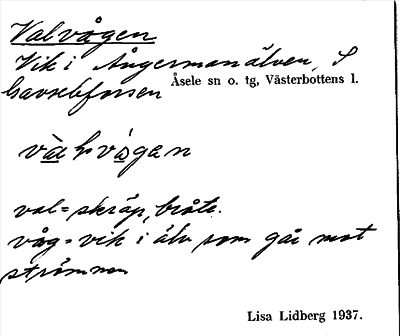 Valvågen
Vik i Ångermanälven, S
Gavselforsen
Åsele sn o. tg, Västerbottens l.
vàl vågan
val = skräp, bråte.
våg = vik i älv som går mot
strömmen
Lisa Lidberg 1937.